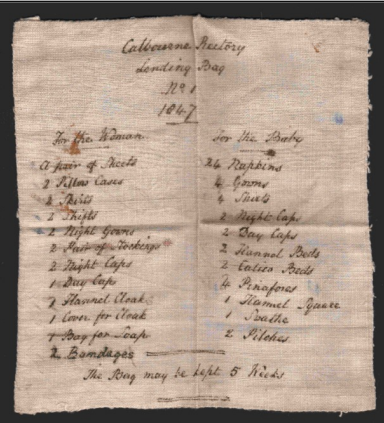 Calbourne Rectory
Lending Bag
No 1
1847
For the Woman
A pair of Sheets
2 Pillow Cases
2 Shirts
2 Shifts
2 Night Gowns
2 Pair of Stockings
2 Night Caps
1 Day Cap
1 Flannel Cloak
1 Cover for Cloak
1 Bag for Soap
2 Bandages
For the Baby
24 Napkins
4 Gowns
4 Shirts
2 Night Caps
2 Day Caps
2 Flannel Beds
2 Calico Beds
4 Pinafores
1 Flannel Square
1 Swathe
2 Pilches
The Bag may be kept 5 Weeks